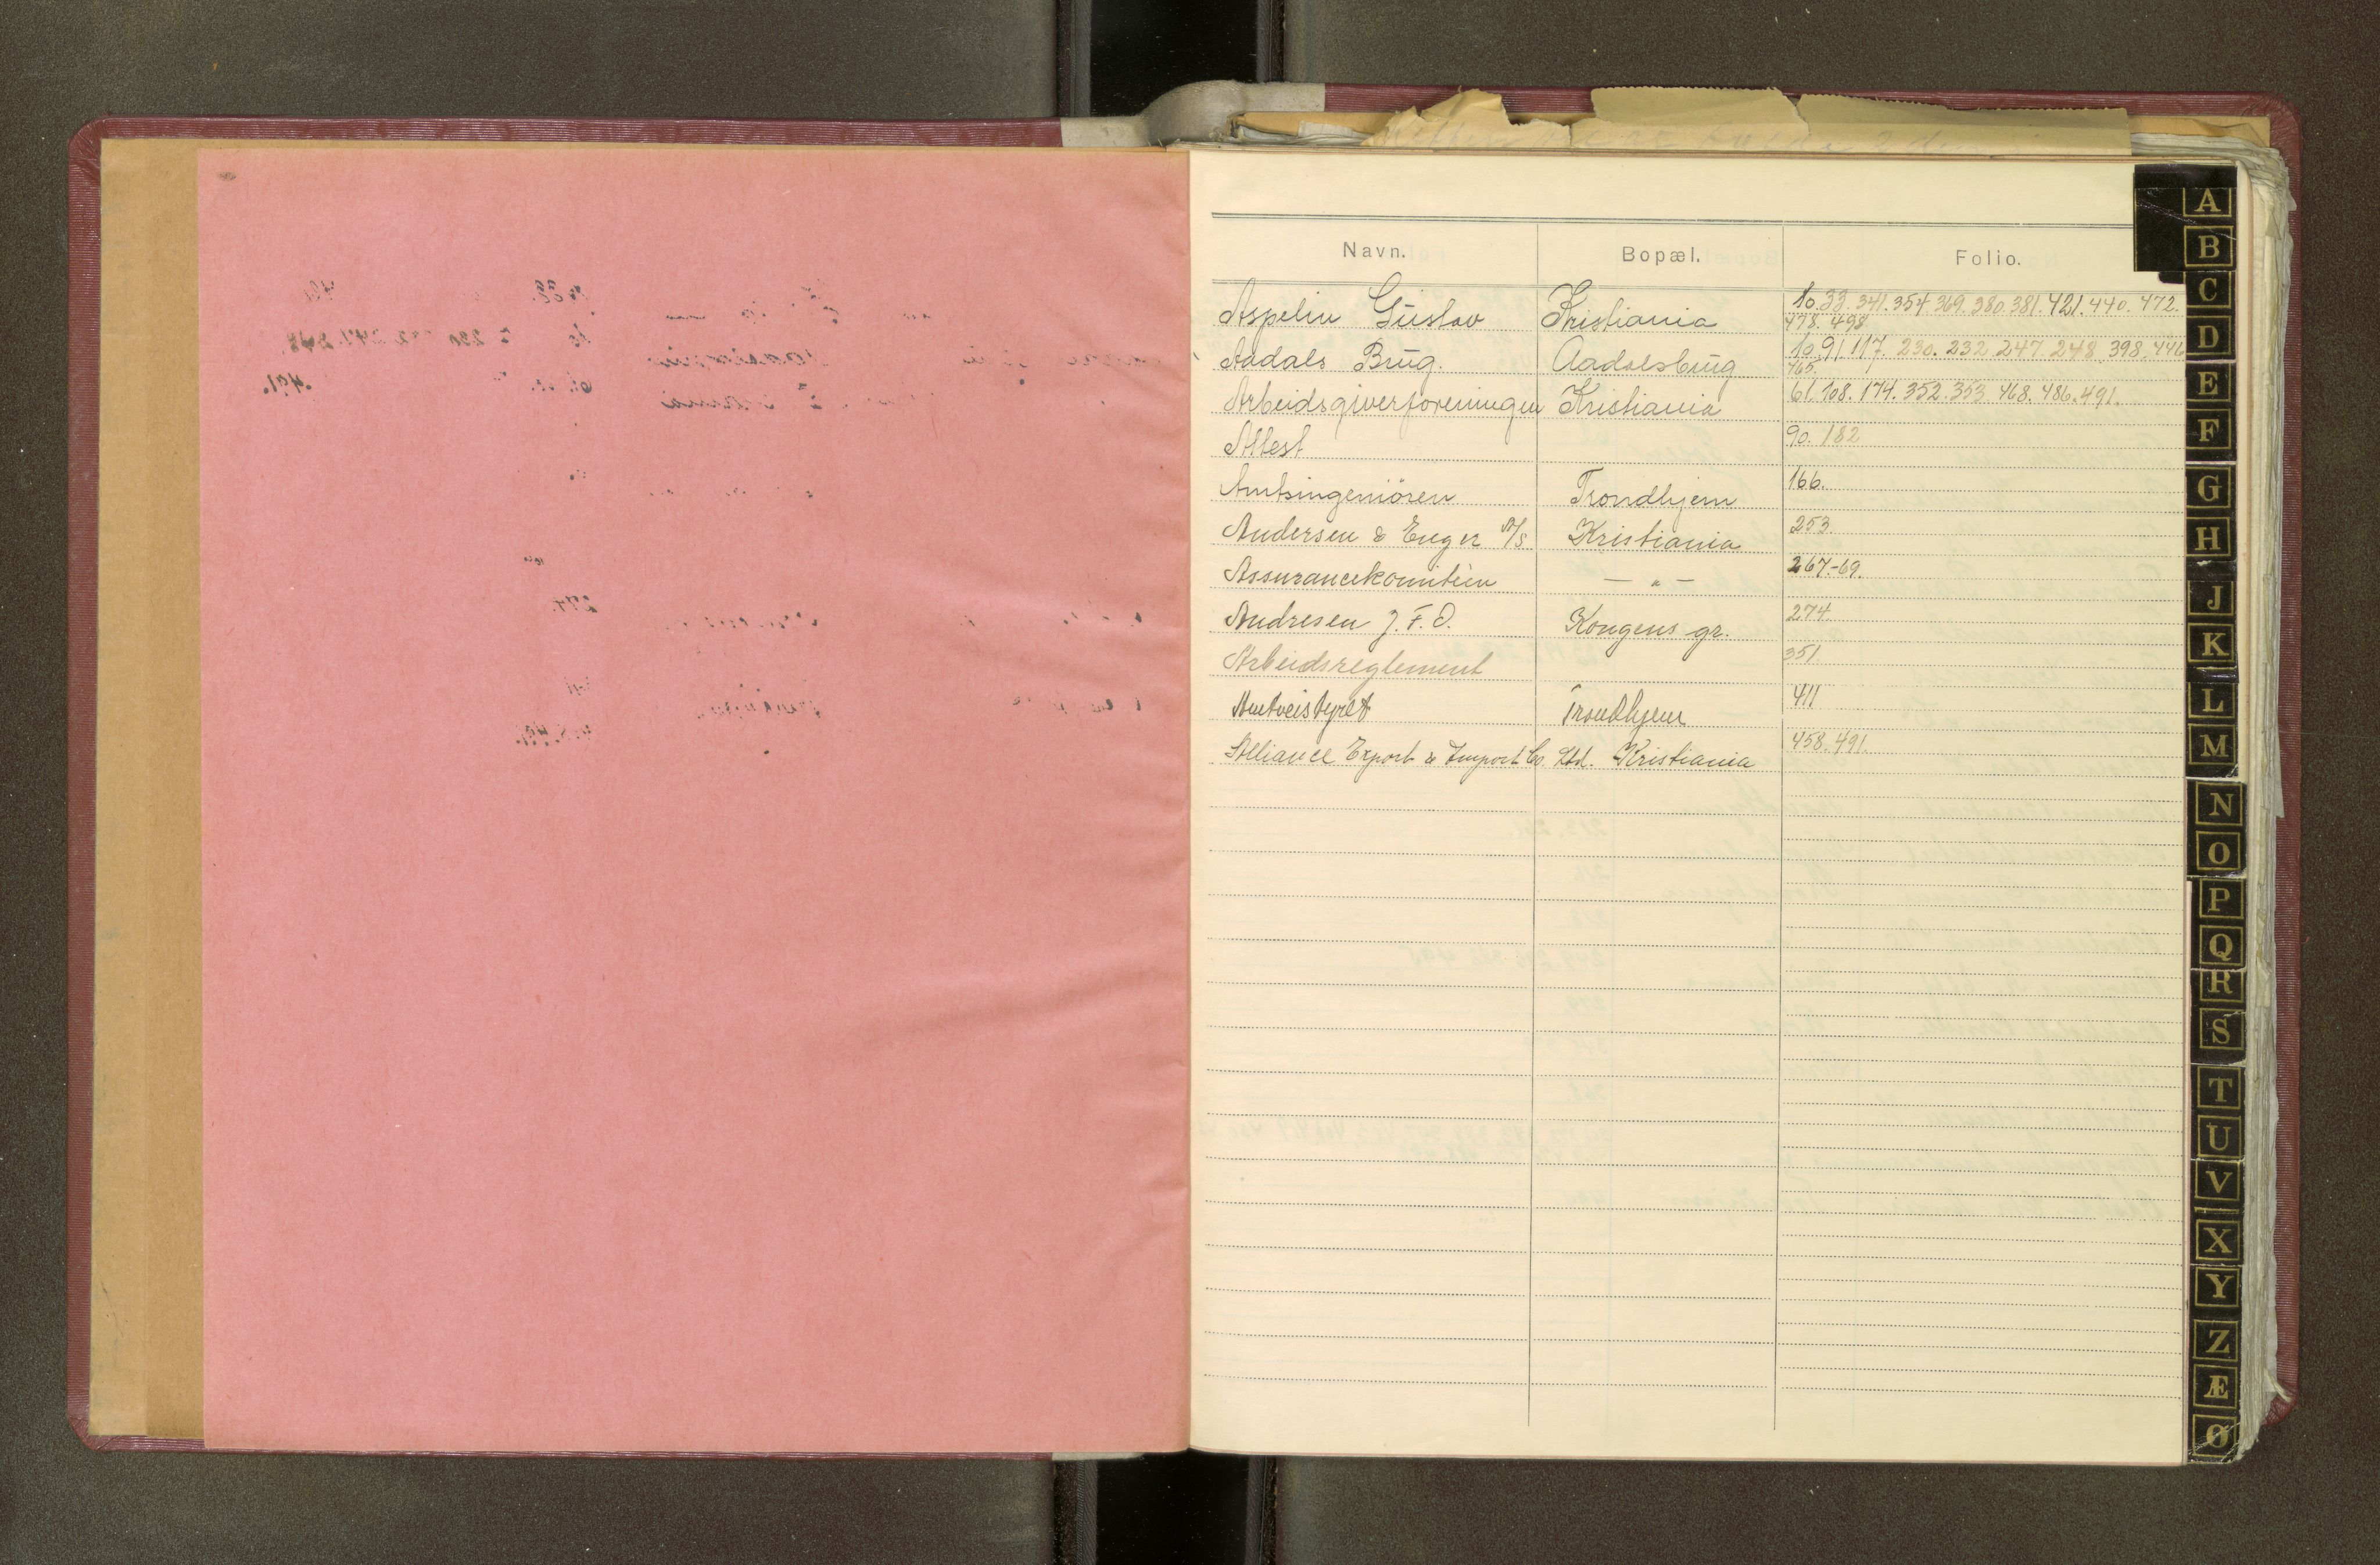 Navn. Bopæl. Folio.
Aspelin Gustav Kristiania 10. 33. 341. 354. 369. 380. 381. 421. 440. 472.
478. 498
Aadals Brug. Aadalsbrug 10. 91. 117. 230. 232. 247. 248. 398. 446
465.
Arbeidsgiverforeningen Kristiania 61. 108. 174. 352. 353. 468. 486. 491.
Attest 90. 182
Amtsingeniören Trondhjem 166.
Andersen & Enger A/S Kristiania 253
Assurancekomitéen — „ — 267.-69.
Andresen J. F. O. Kongens gr. 274.
Arbeidsreglement 351
Amtveistyret Trondhjem 411
Alliance Export & Import Co. Ltd. Kristiania 458. 491.
A
B
C
D
E
F
G
H
J
K
L
M
N
O
P
Q
R
S
T
U
V
X
Y
Z
Æ
Ø